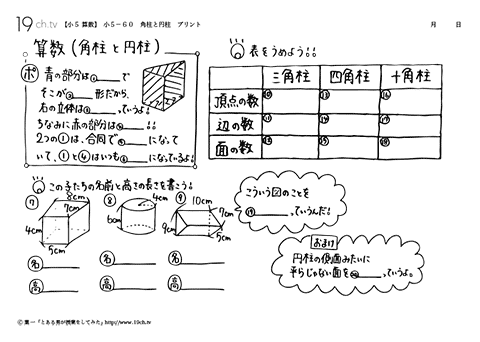 19 ch.tv 【小5算数】 小5-60 角柱と円柱 プリント
月 日
算数(角柱と円柱)
ポ 青の部分は①____で
そこが③____形だから、
右の立体は③____っていうよ!
ちなみに赤の部分は④____!!
2つの①は、合同で⑤____になって
いて、①と④はいつも⑥____になっているよ!
表をうめよう!!
三角柱 四角柱 十角柱
頂点の数 ⑩ ⑬ ⑯
辺の数 ⑪ ⑭ ⑰
面の数 ⑫ ⑮ ⑱
この子たちの名前と高さの長さを書こう!
⑦ 8cm 7cm 4cm 5cm
⑧ 4cm 6cm
⑨ 10cm 7cm 5cm
名____ 名____ 名____
高____ 高____ 高____
こういう図のことを
⑲____っていうんだ!
おまけ
円柱の側面みたいに
平らじゃない面を⑳____っていうよ。
© 葉一「とある男が授業をしてみた」http://www.19ch.tv